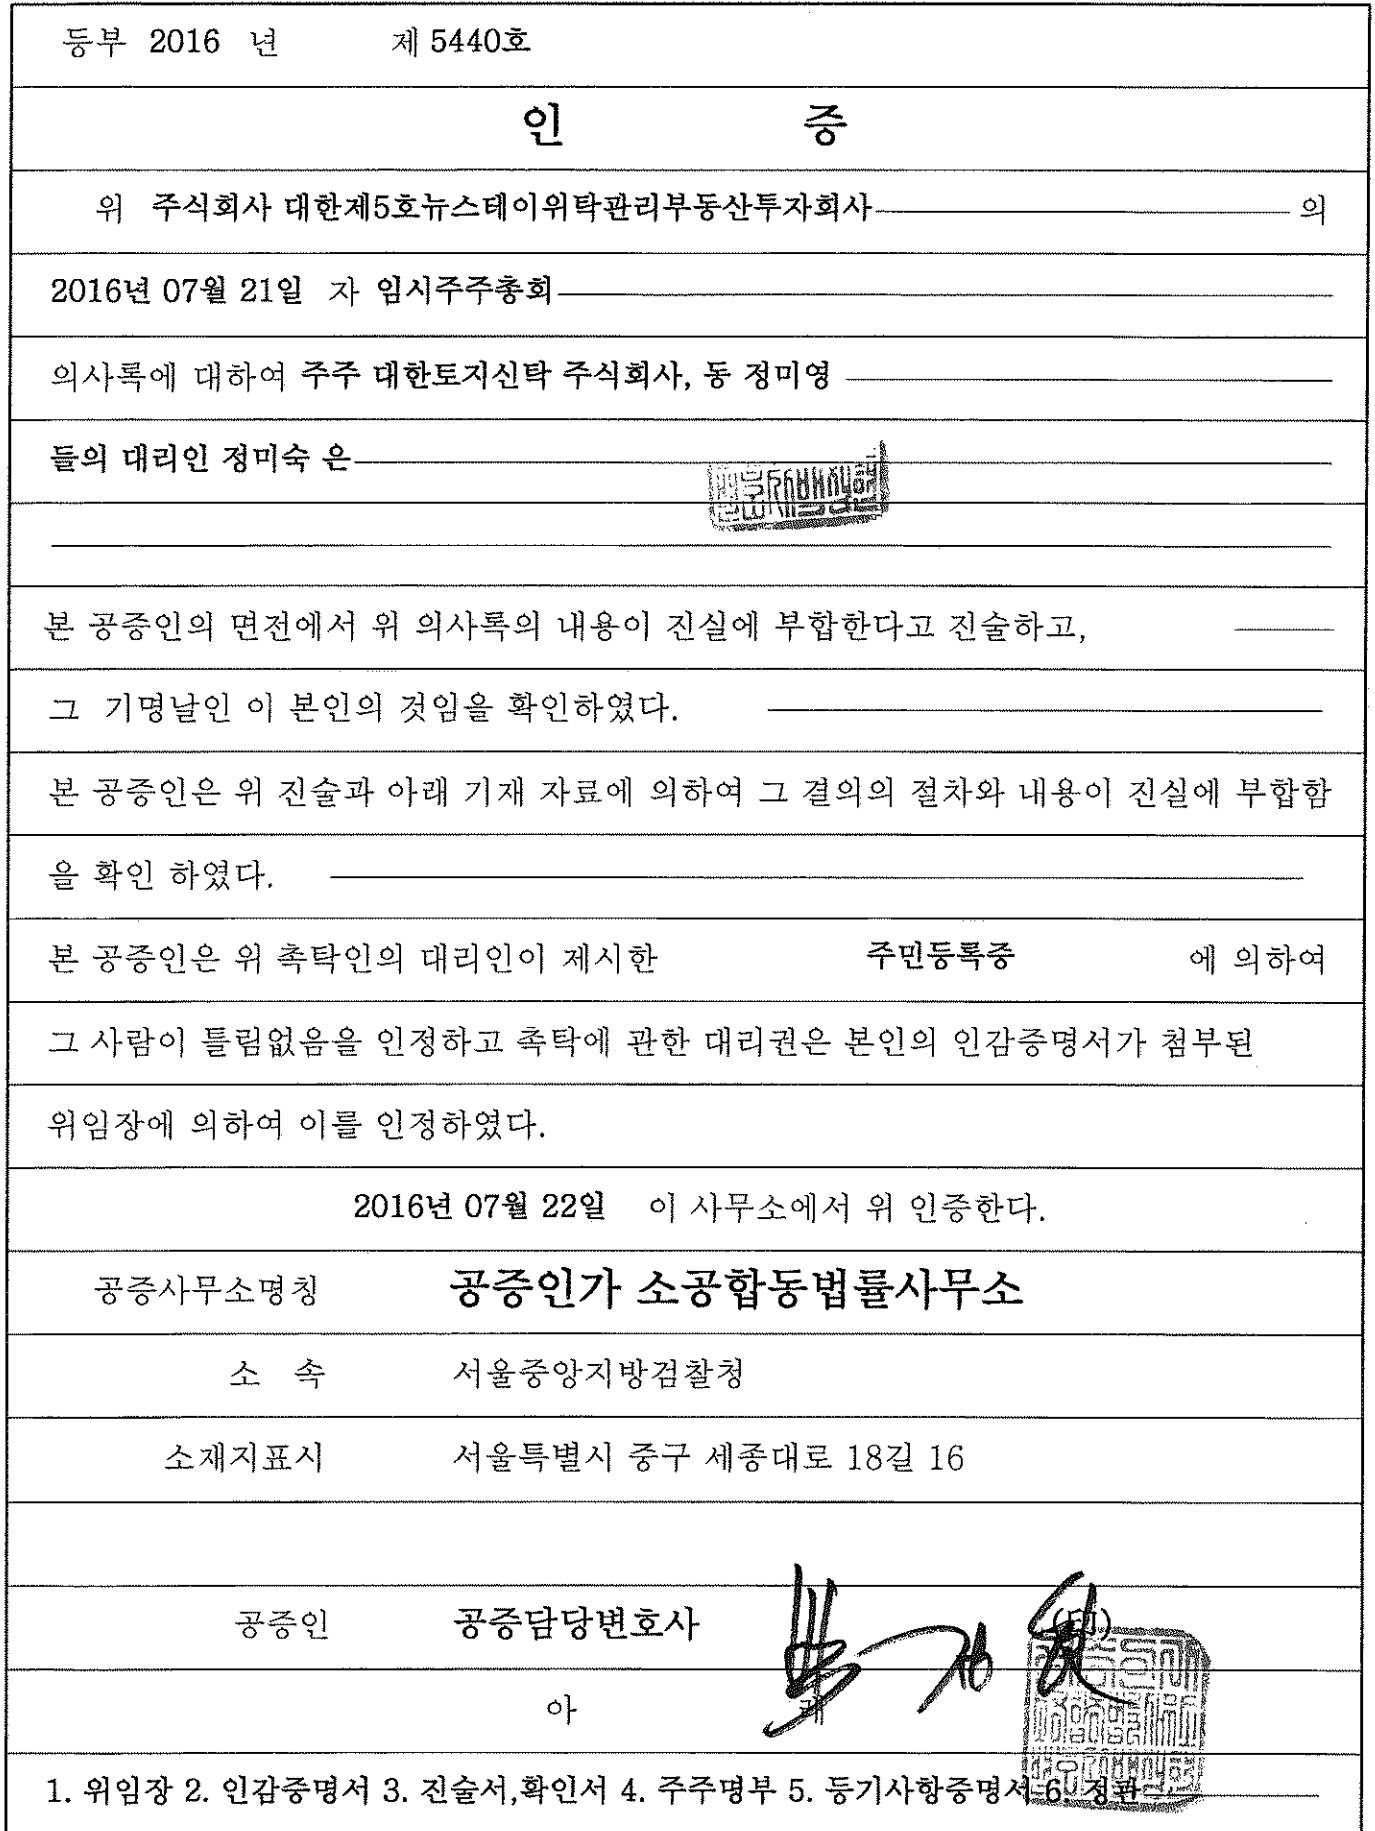 등부 2016 년 제 5440호
인 증
위 주식회사 대한제5호뉴스테이위탁관리부동산투자회사 의
2016년 07월 21일 자 임시주주총회
의사록에 대하여 주주 대한토지신탁 주식회사, 동 정미영
들의 대리인 정미숙 은
본 공증인의 면전에서 위 의사록의 내용이 진실에 부합한다고 진술하고,
그 기명날인 이 본인의 것임을 확인하였다.
본 공증인은 위 진술과 아래 기재 자료에 의하여 그 결의의 절차와 내용이 진실에 부합함
을 확인 하였다.
본 공증인은 위 촉탁인의 대리인이 제시한 주민등록증 에 의하여
그 사람이 틀림없음을 인정하고 촉탁에 관한 대리권은 본인의 인감증명서가 첨부된
위임장에 의하여 이를 인정하였다.
2016년 07월 22일 이 사무소에서 위 인증한다.
공증사무소명칭 공증인가 소공합동법률사무소
소 속 서울중앙지방검찰청
소재지표시 서울특별시 중구 세종대로 18길 16
공증인 공증담당변호사 (印)
아 래
1. 위임장 2. 인감증명서 3. 진술서,확인서 4. 주주명부 5. 등기사항증명서 6. 정관